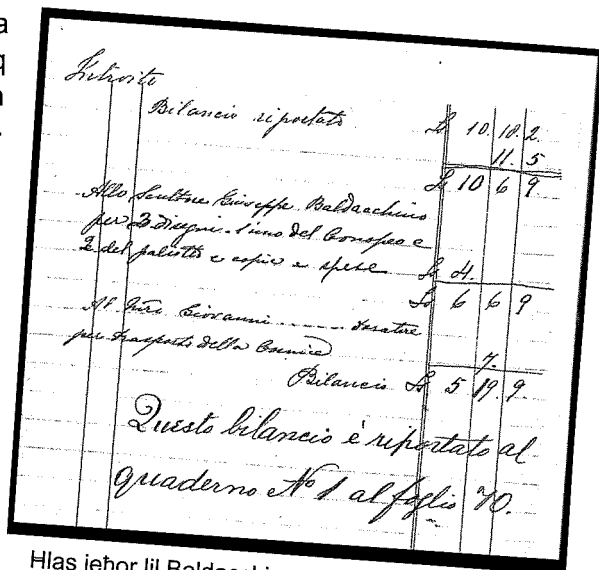 a
q
n
.
Introito
Bilancio riportato £ 10. 18. 2
11. 5
£ 10 6 9
Allo Scultore Giuseppe Baldacchino
per 3 disegni - l'uno del e
2 del paliotto e copie e spese £ 4.
£ 6 6 9
Al Giovanni ........ doratore
per trasporto della Cornice 7.
Bilancio £ 5 19. 9.
Questo bilancio è riportato al
quaderno No 1 al foglio 70.
Hlas ieħor lil